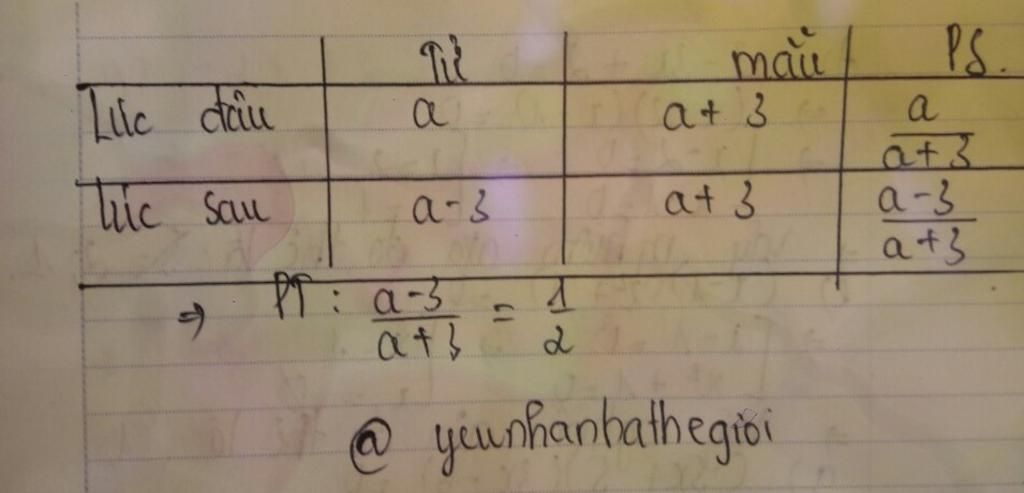 Tử mẫu PS.
Lúc đầu a a+3 a/(a+3)
lúc sau a-3 a+3 (a-3)/(a+3)
⇒ PT: (a-3)/(a+3) = 1/2
@ yeunhanhathegioi